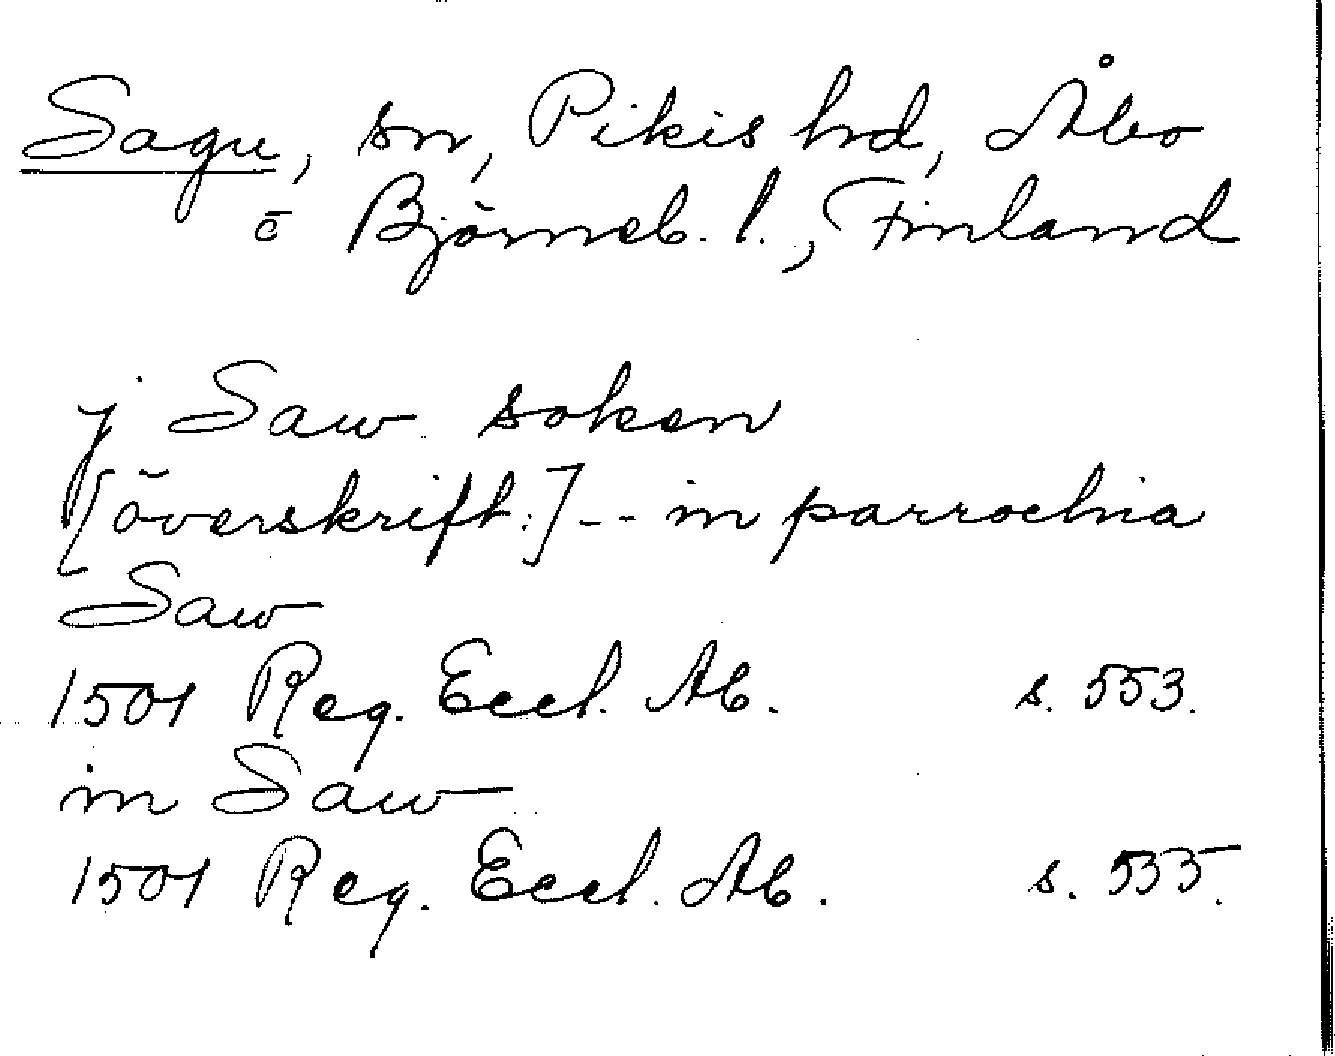 Sagu, sn, Pikis hd, Åbo
o Björneb. l., Finland
j Saw soken
[överskrift:] -- in parrochia
Saw
1501 Reg. Eccl. Ab. s. 553.
in Saw
1501 Reg. Eccl. Ab. s. 535.